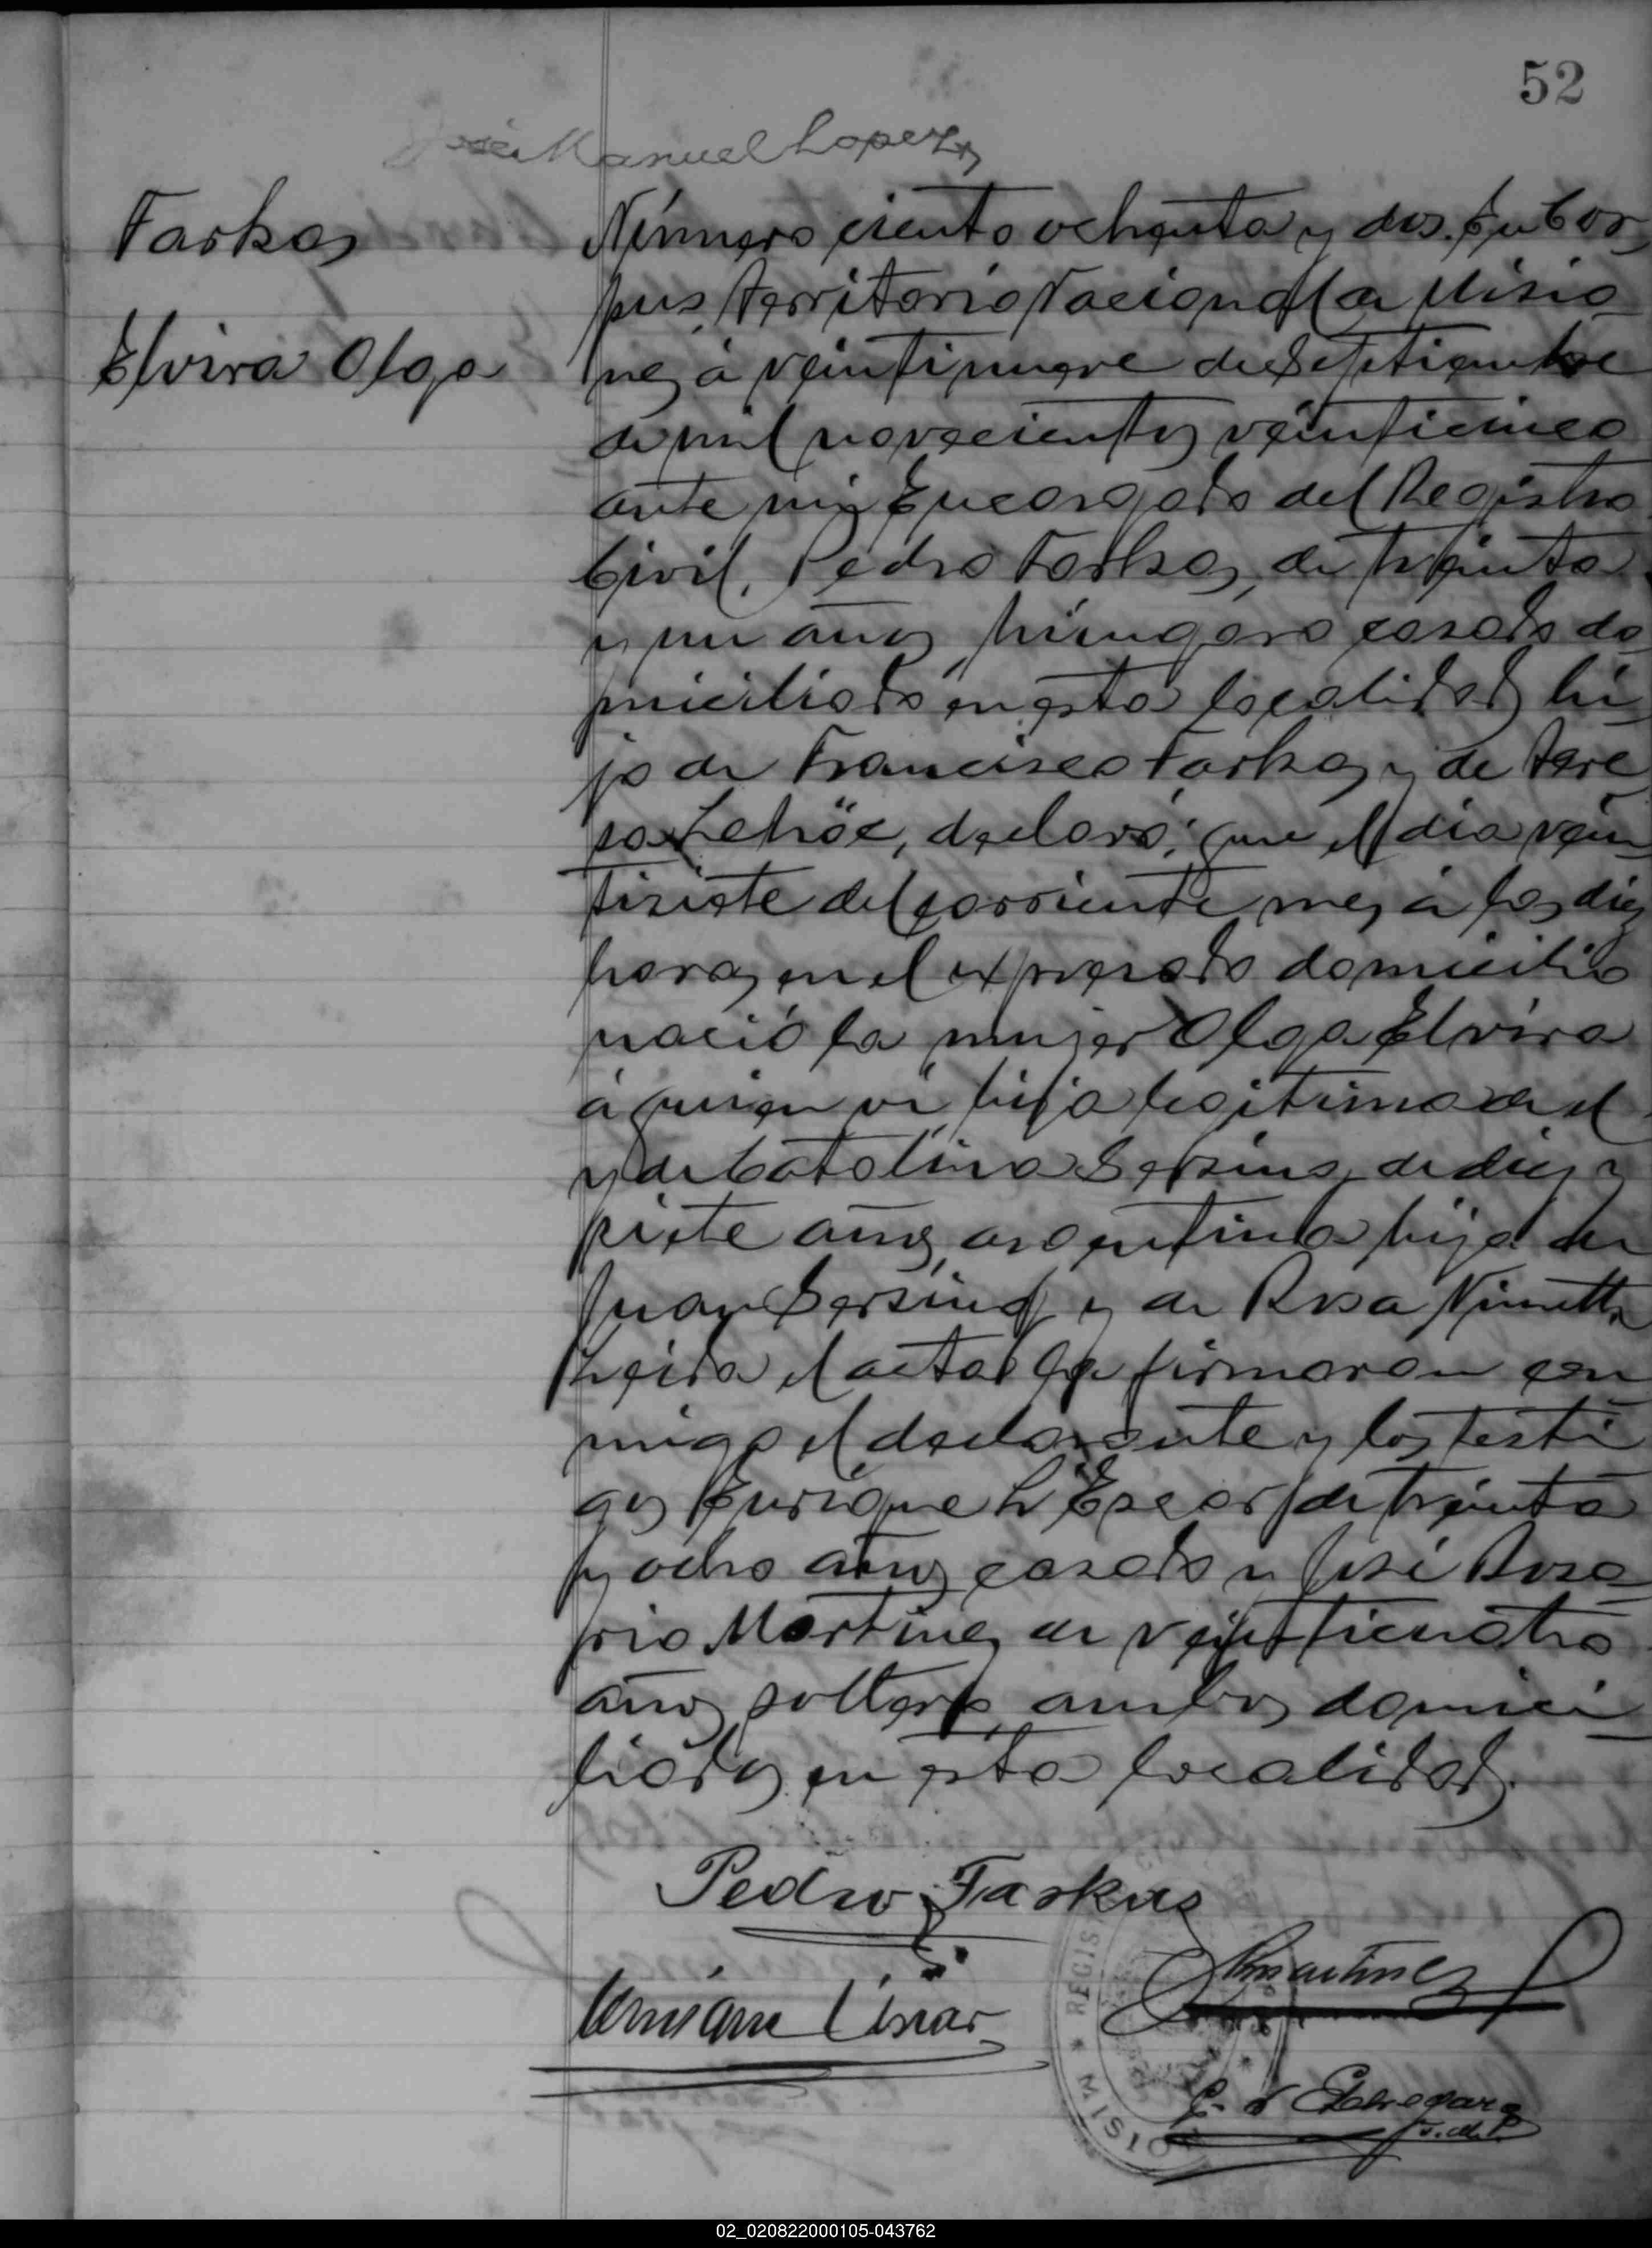 52
José Manuel Lopez
Farkas
Elvira Olga
Número ciento ochenta y dos. En Cor-
pus, Territorio Nacional de Misio-
nes á veintinueve de Septiembre
de mil novecientos veinticinco
ante mi, Encargado del Registro
Civil, Pedro Farkas, de treinta
y un años, húngaro casado do-
miciliado en esta localidad, hi-
jo de Francisco Farkas, y de Tere-
sa declaró: que el dia vein-
tisiete del corriente mes á las diez
horas en el expresado domicilio
nació la mujer Olga Elvira
á quien vi, hija legitima de el
y de Catalina de diez y
siete años, argentina hija de
Juan y de Rosa
Leida el acta la firmaron con-
migo el declarante y los testi-
gos Enrique de treinta
y ocho años casado y José Rosa-
rio Martinez de veinticuatro
años soltero, ambos domici-
liados en esta localidad.
Pedro Farkas
Martinez
REGIS
MISIO